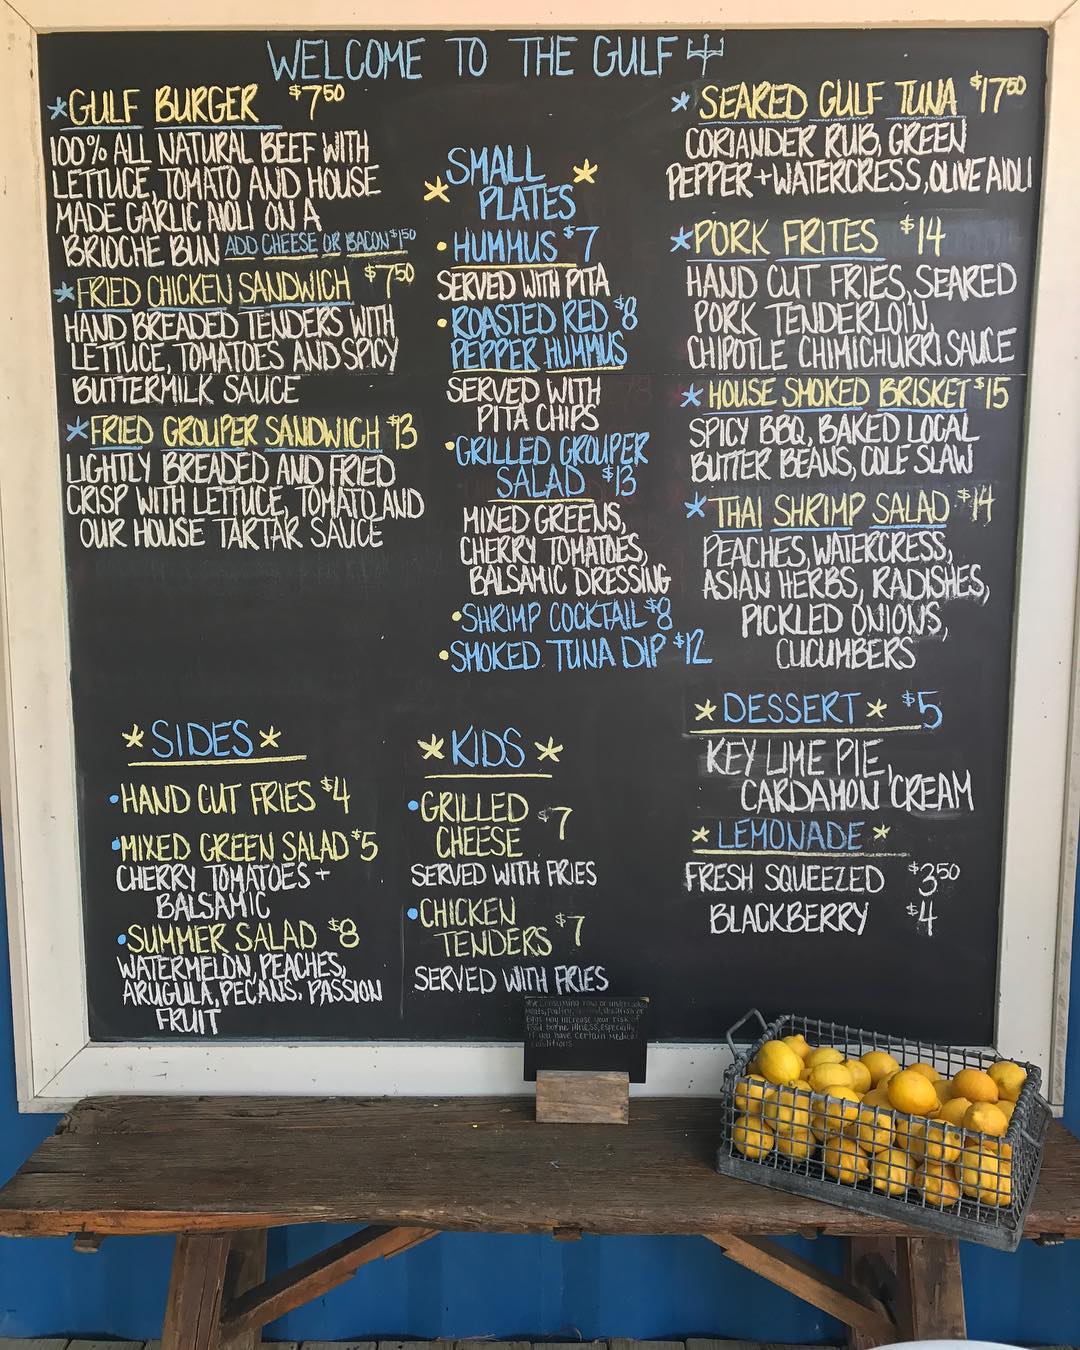 WELCOME TO THE GULF
*GULF BURGER $7⁵⁰
100% ALL NATURAL BEEF WITH
LETTUCE, TOMATO AND HOUSE
MADE GARLIC AIOLI ON A
BRIOCHE BUN ADD CHEESE OR BACON $1⁵⁰
*FRIED CHICKEN SANDWICH $7⁵⁰
HAND BREADED TENDERS WITH
LETTUCE, TOMATOES AND SPICY
BUTTERMILK SAUCE
*FRIED GROUPER SANDWICH $13
LIGHTLY BREADED AND FRIED
CRISP WITH LETTUCE, TOMATO AND
OUR HOUSE TARTAR SAUCE
*SMALL
PLATES*
•HUMMUS $7
SERVED WITH PITA
•ROASTED RED $8
PEPPER HUMMUS
SERVED WITH
PITA CHIPS
•GRILLED GROUPER
SALAD $13
MIXED GREENS,
CHERRY TOMATOES,
BALSAMIC DRESSING
•SHRIMP COCKTAIL $8
•SMOKED TUNA DIP $12
*SEARED GULF TUNA $17⁵⁰
CORIANDER RUB, GREEN
PEPPER + WATERCRESS, OLIVE AIOLI
*PORK FRITES $14
HAND CUT FRIES, SEARED
PORK TENDERLOIN,
CHIPOTLE CHIMICHURRI SAUCE
*HOUSE SMOKED BRISKET $15
SPICY BBQ, BAKED LOCAL
BUTTER BEANS, COLE SLAW
*THAI SHRIMP SALAD $14
PEACHES, WATERCRESS,
ASIAN HERBS, RADISHES,
PICKLED ONIONS,
CUCUMBERS
*SIDES*
•HAND CUT FRIES $4
•MIXED GREEN SALAD $5
CHERRY TOMATOES +
BALSAMIC
•SUMMER SALAD $8
WATERMELON, PEACHES,
ARUGULA, PECANS, PASSION
FRUIT
*KIDS*
•GRILLED
CHEESE $7
SERVED WITH FRIES
•CHICKEN
TENDERS $7
SERVED WITH FRIES
*DESSERT* $5
KEY LIME PIE,
CARDAMON CREAM
*LEMONADE*
FRESH SQUEEZED $3⁵⁰
BLACKBERRY $4
Consuming raw or undercooked
meats, poultry, shellfish or
Eggs may increase your risk of
food borne illness, especially
if you have certain medical
conditions